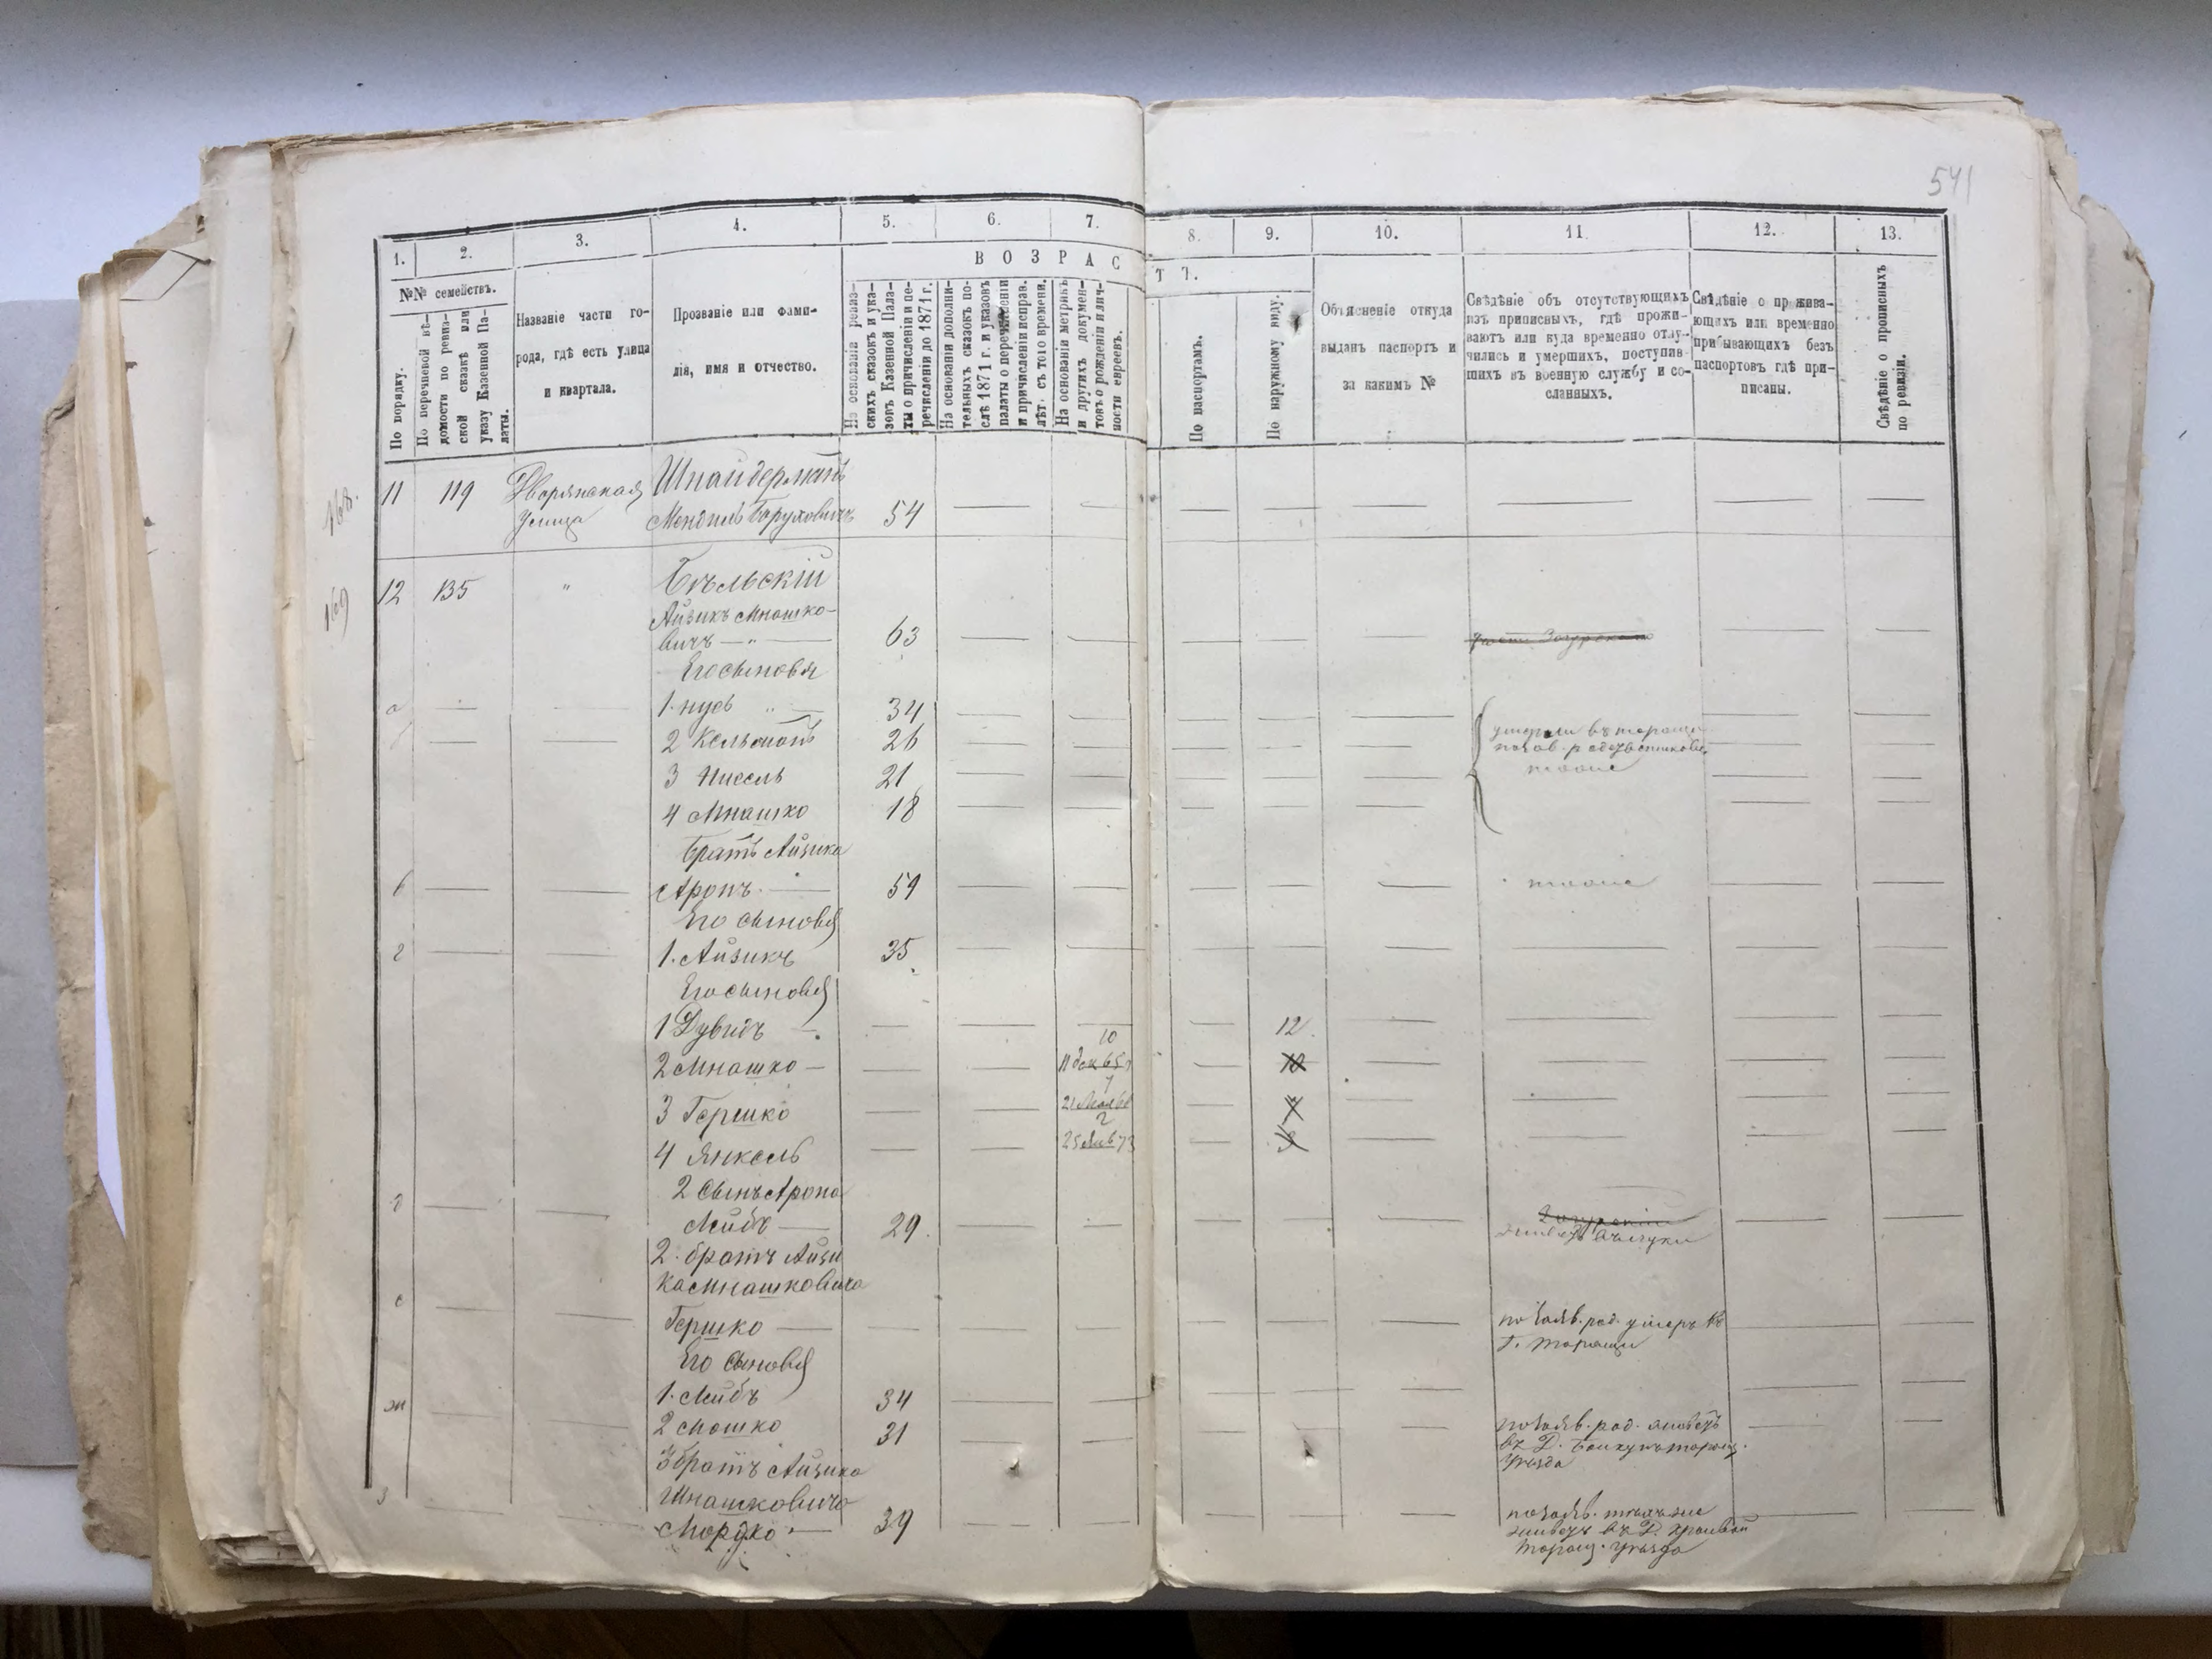 541
1.
2.
3.
4.
5.
6.
7.
8.
9.
10.
11.
12.
13.
№№ семействъ.
По порядку.
По перечневой вѣ-
домости по ревиз-
ской сказкѣ или
указу Казенной Па-
латы.
Названіе части го-
рода, гдѣ есть улица
и квартала.
Прозваніе или фами-
лія, имя и отчество.
ВОЗРАС
ТЪ.
На основаніи ревиз-
скихъ сказокъ и ука-
зовъ Казенной Пала-
ты о причисленіи и пе-
речисленіи до 1871 г.
На основаніи дополни-
тельныхъ сказокъ по-
слѣ 1871 г. и указовъ
палаты о перечисленіи
и причисленіи исправ.
лѣт. съ того времени.
На основаніи метрикъ
и другихъ докумен-
товъ о рожденіи и лич-
ности евреевъ.
По паспортамъ.
По наружному виду.
Объясненіе откуда
выданъ паспортъ и
за какимъ №
Свѣдѣніе объ отсутствующихъ
изъ приписныхъ, гдѣ прожи-
ваютъ или куда временно отлу-
чились и умершихъ, поступив-
шихъ въ военную службу и со-
сланныхъ.
Свѣдѣніе о прожива-
ющихъ или временно
прибывающихъ безъ
паспортовъ гдѣ при-
писаны.
Свѣдѣніе о прописныхъ
по ревизіи.
168.
11 119 Дворянская Шнайдерманъ
улица Мендиль Боруховичъ 54
169
12 135 " Бѣльскій
Айзикъ Мношко-
вичъ — " — 63
Его сыновья
а 1. Нусь " 34
б 2 Кельманъ 26
умерли въ тараще
по заяв. родственниковъ
3 Нисель 21
4 Мнашко 18
братъ Айзика
в Аронъ 59
Его сыновья
г 1. Айзикъ 35
Его сыновья
1 Дувидъ 12
10
2 Мнашко 11 дек 65
7
3 Гершко 21 Мая 68
2
4 Янкель 25 Янв 73
2 Сынъ Арона
д Лейбъ 29
2. братъ Айзи
ка Мнашковича
е Гершко по заяв. род. умеръ въ
г. Тараще
Его сыновья
ж 1. Лейбъ 34
2 Мошко 31 по заяв. род. живетъ
въ Д.
уѣзда
3 братъ Айзика
Мнашковича
з Мордко 39 по заяв.
живетъ въ Д.
Таращ. уѣзда